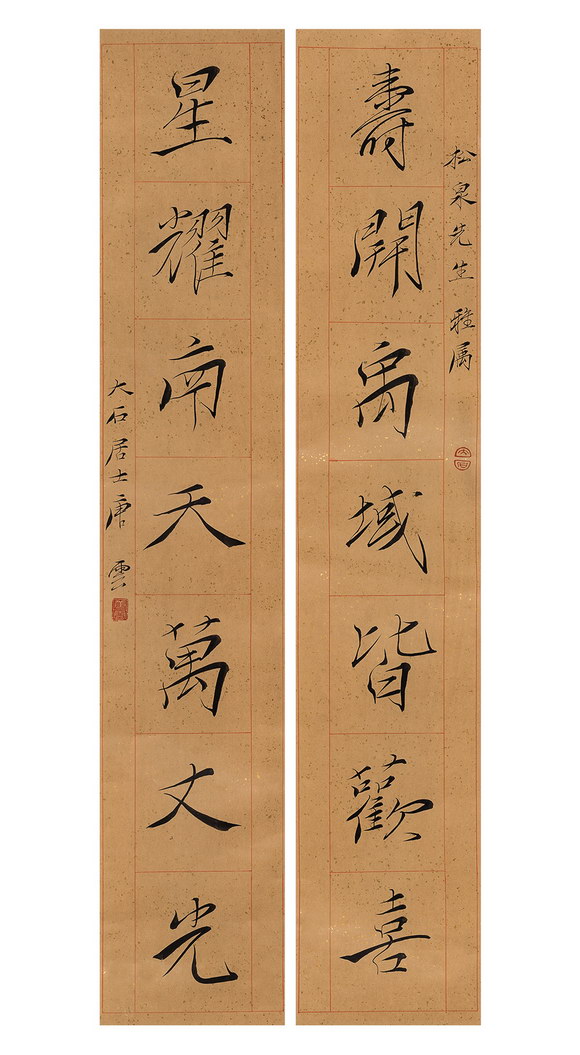 松泉先生雅属
壽開禹域皆歡喜
大石
星耀南天萬丈光
大石居士唐雲